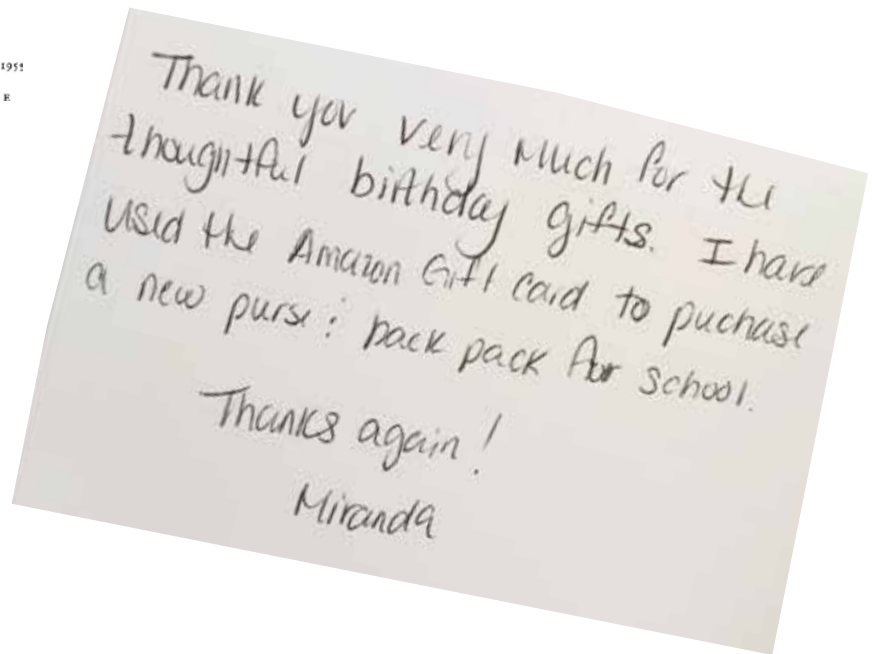 195
E
Thank you very much for the
thoughtful birthday gifts. I have
used the Amazon Gift card to puchase
a new purse & back pack for school.
Thanks again!
Miranda